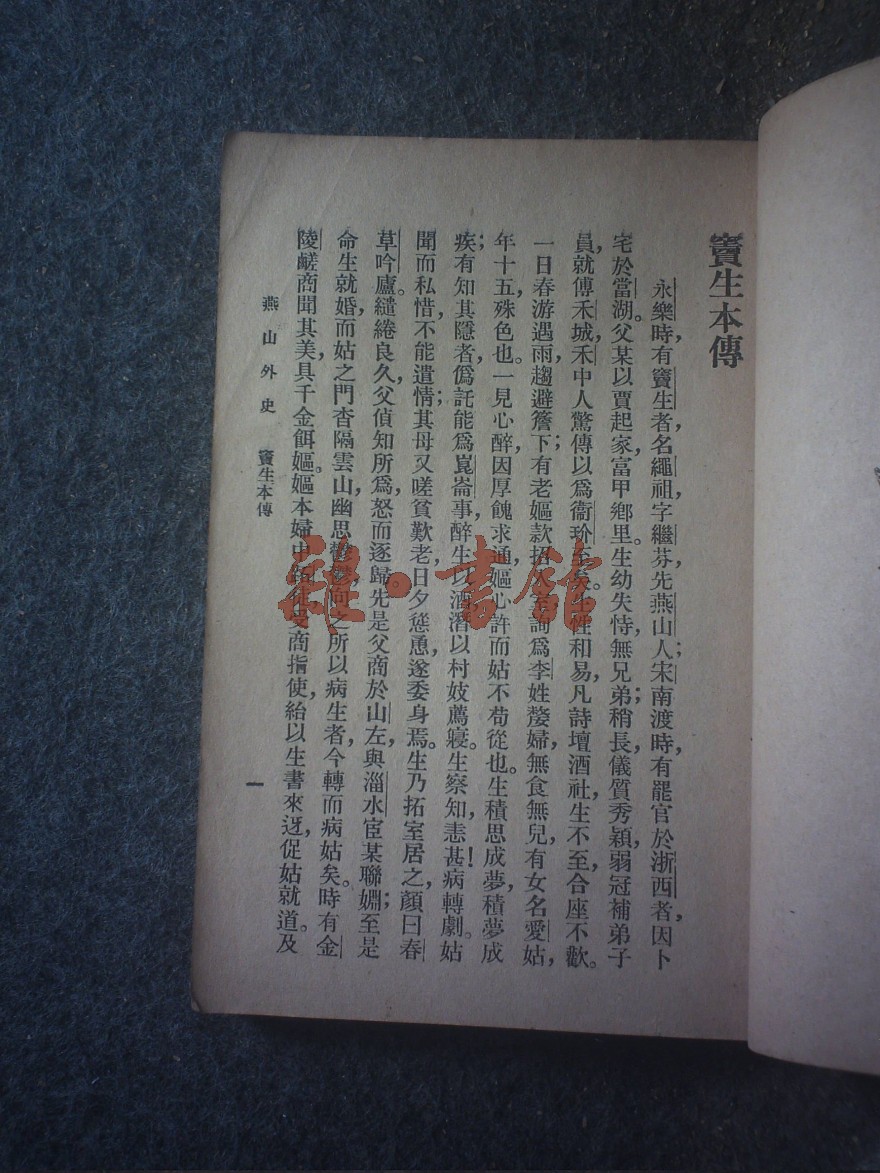 竇生本傳
永樂時，有竇生者，名繩祖，字繼芬，先燕山人；宋南渡時，有罷官於浙西者，因卜
宅於當湖。父某以賈起家，富甲鄉里。生幼失恃，無兄弟；稍長，儀質秀穎，弱冠補弟子
員，就傅禾城，禾中人驚傳以爲衞玠至矣。生性和易，凡詩壇酒社，生不至，合座不歡。
一日春游遇雨，趨避簷下；有老嫗款招入，詢爲李姓嫠婦，無食無兒，有女名愛姑，
年十五，殊色也。一見心醉，因厚餽求通，嫗心許而姑不苟從也。生積思成夢，積夢成
疾；有知其隱者，僞託能爲崑崙事，醉生以酒，潛以村妓薦寢。生察知，恚甚！病轉劇。姑
聞而私惜，不能遣情；其母又嗟貧歎老，日夕慫恿，遂委身焉。生乃拓室居之，顏曰春
草吟廬。繾綣良久，父偵知所爲，怒而逐歸。先是父商於山左，與淄水宦某聯婣；至是
命生就婚，而姑之門杳隔雲山，幽思鬱鬱，向之所以病生者，今轉而病姑矣。時有金
陵鹺商聞其美，具千金餌嫗。嫗本婦中　　，受商指使，紿以生書來迓，促姑就道。及
燕山外史　竇生本傳
一
雜·書館